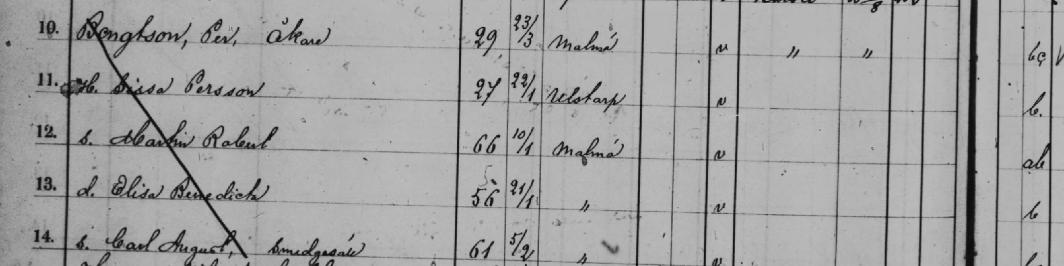 10. Bengtson, Per, åkare 29 23/3 Malmö v " " bç
11. H. Sissa Persson 27 22/1 v b.
12. s. Martin Robert 66 10/1 Malmö v ab
13. d. Elisa Benedickta 56 21/1 " v b
14. s. Carl August, 61 5/2 " v